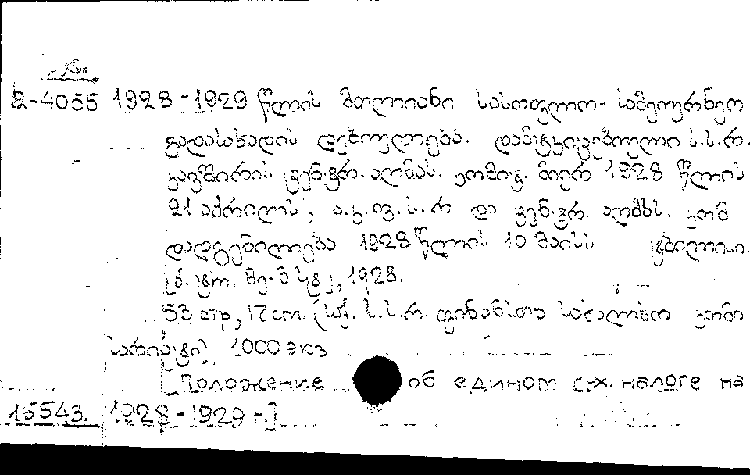 2-4055 1928-1929 წლის მთლიანი სასოფლო-სამეურნეო
გადასახადის დებულება. დამტკიცებული ს.ს.რ.
კავშირის ცენ.ჯრ. აღმას. კომიტ. მიერ 1928 წლის
21 აპრილს; ა.კ.ფ.ს.რ და ცენ.ჯრ. აღმს. კომ
დადგენილება 1928 წლის 10 მაისს ტბილისი.
1928.
53 გვ, 17 cm. (საქ. ს.ს.რ. ფინანსთა სახალხო კომი
სარიატი) 1000 экз
[Положение об едином с.-х. налоге на
15543. 1928-1929 -]